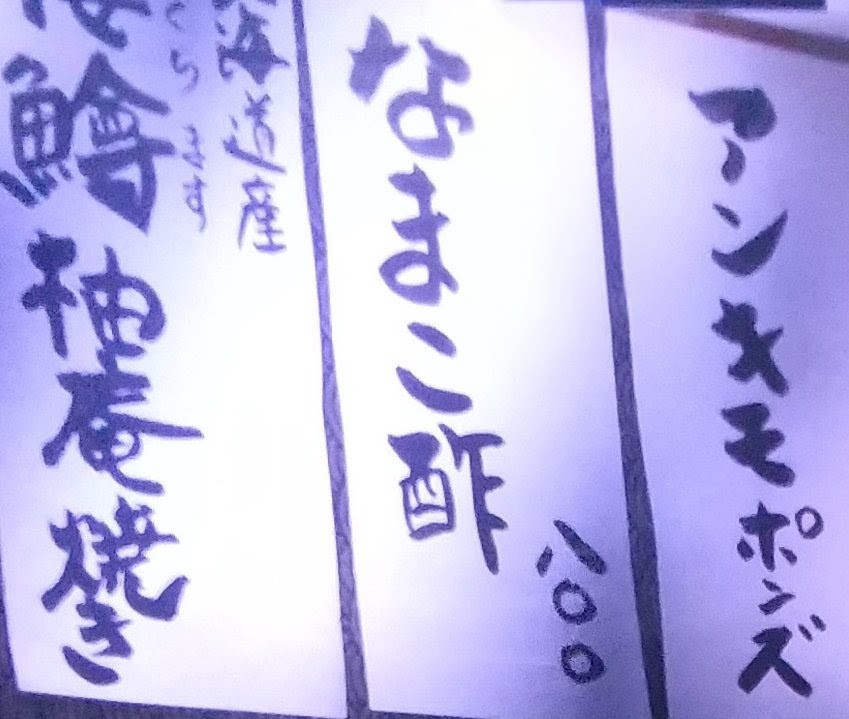 アンキモポンズ
なまこ酢
八〇〇
海道産
くらます
鱒柚庵焼き